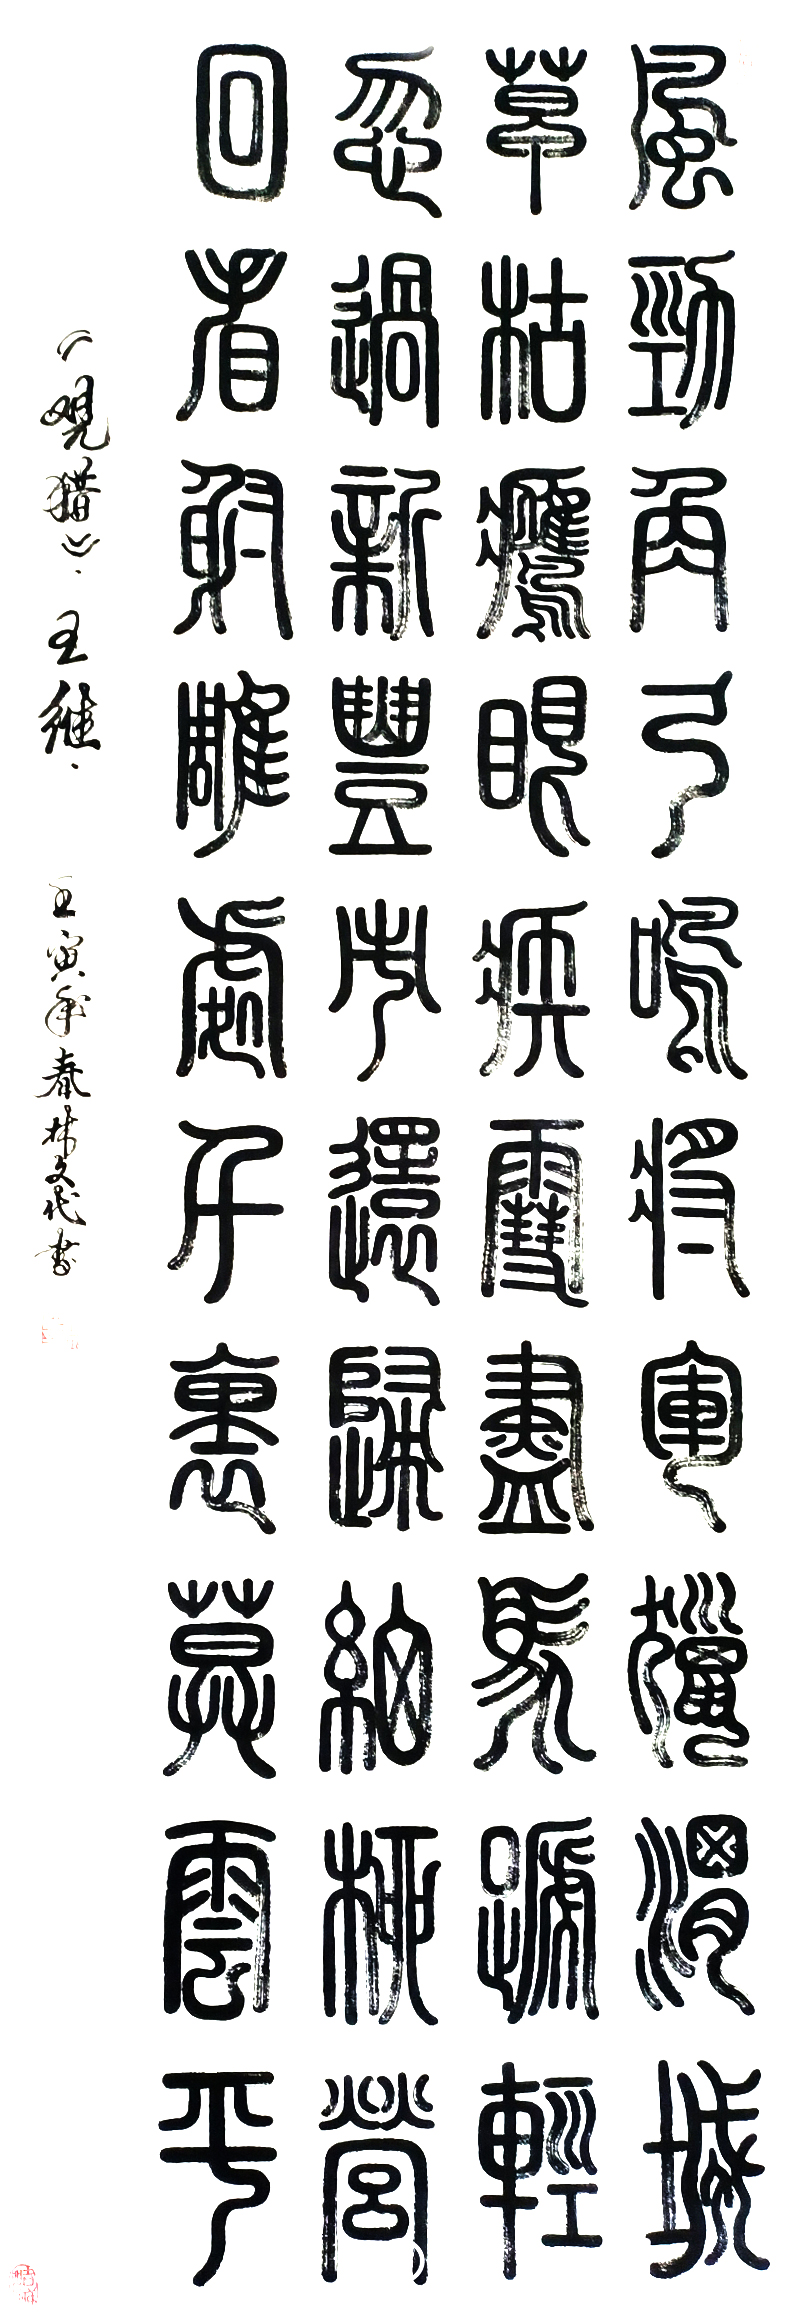 風勁角弓鳴將軍獵渭城
草枯鷹眼疾雪盡馬蹏輕
忽過新豐市還歸細柳營
回看射雕處千裏莫雲平
《观猎》、王维、
壬寅年春林文代书